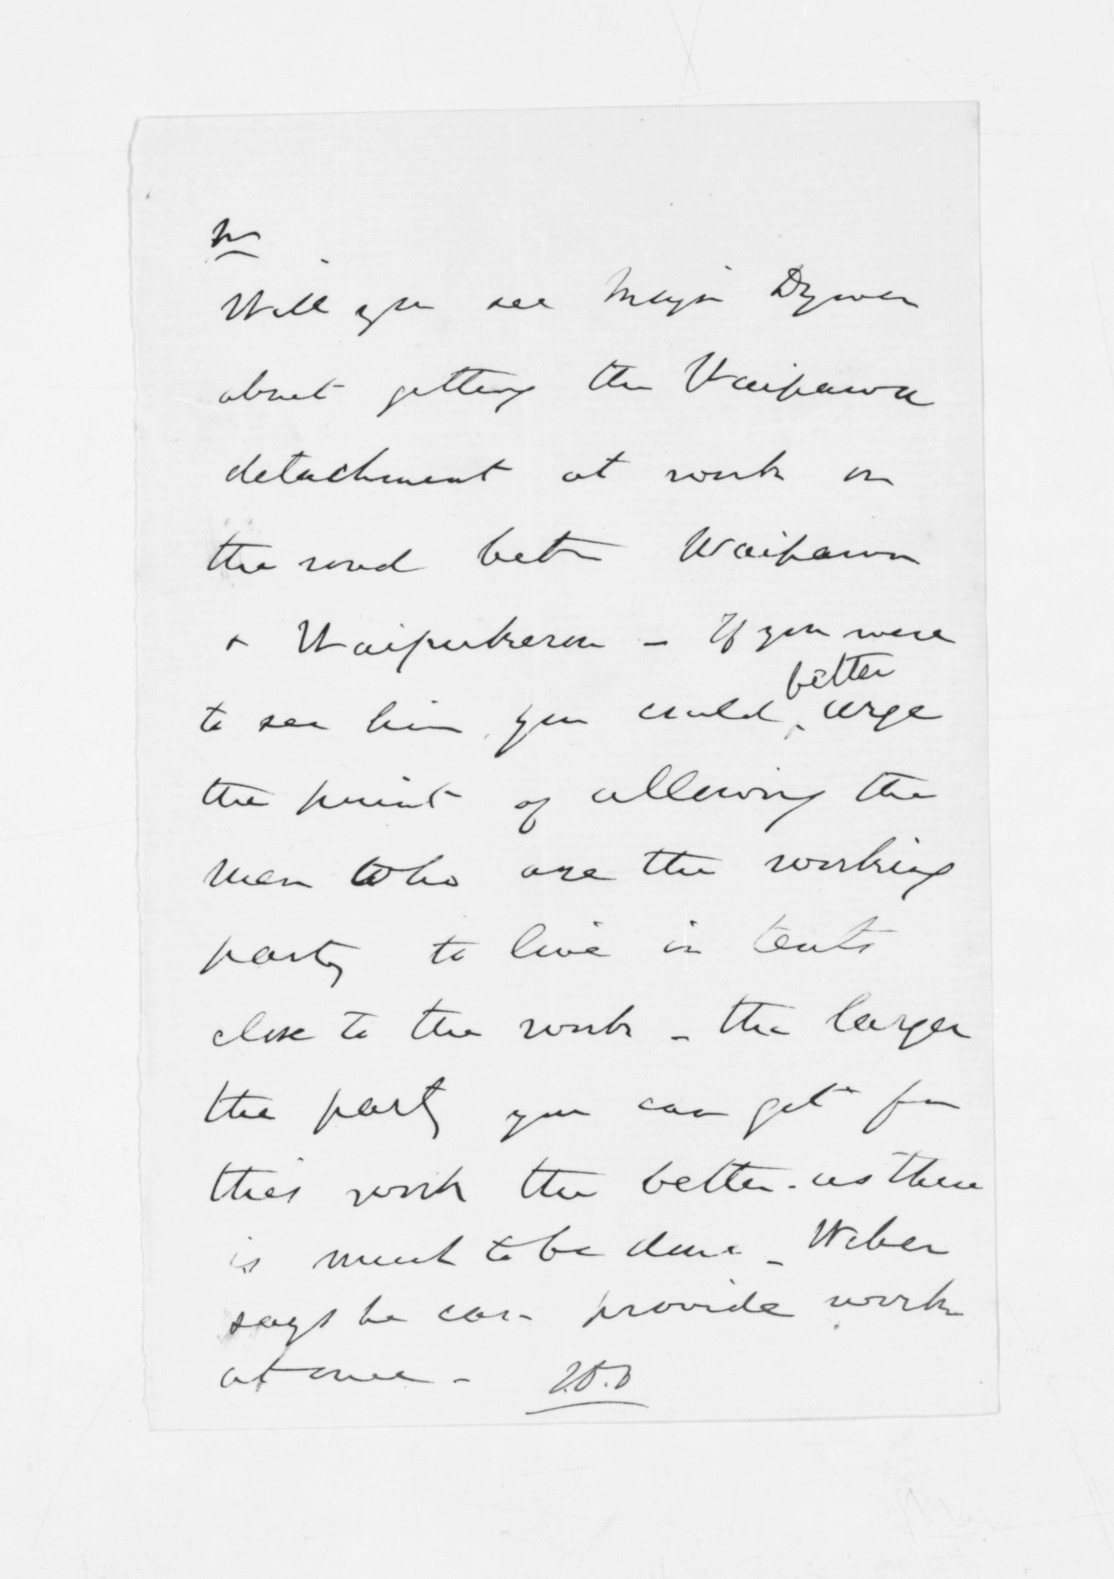 Will you see Major Dywer
about getting the Waipawa
detachment at work on
the road betn Waipawa
& Waipukerau - If you were
better
to see him, you could ^ urge
the point of allowing the
men who are the working
party to live in tents
close to the work - the larger
the party you can get for
this work the better - as there
is much to be done - Weber
says he can provide work
at once -